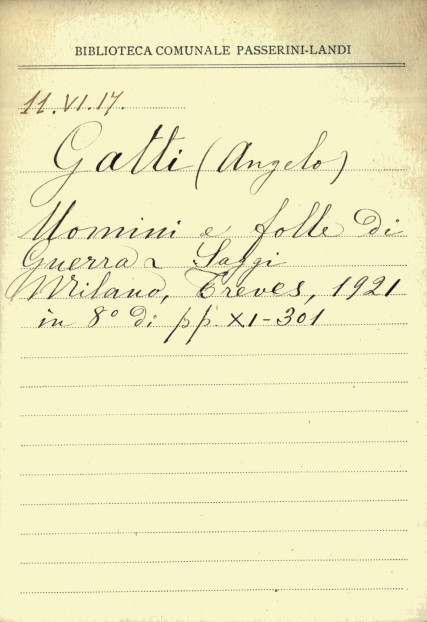 BIBLIOTECA COMUNALE PASSERINI-LANDI
11.VI.17.
Gatti (Angelo)
Uomini e folle di
Guerra ~ Saggi
Milano, Treves, 1921
in 8° di pp. XI-301